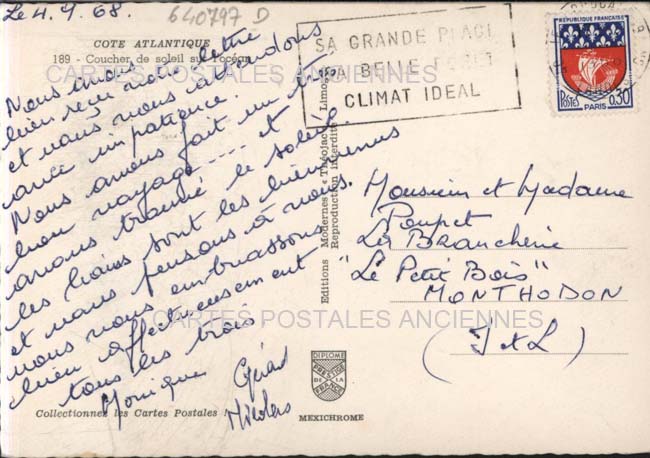 Le 4.9.68.
640797 D
COTE ATLANTIQUE
189 - Coucher de soleil sur l'océan
Nous avons
bien reçu votre lettre
et nous vous attendons
avec impatience.
Nous avons fait un très
bon voyage.... et
avons trouvé le soleil.
les bains sont les bienvenus
et nous pensons à vous.
nous vous embrassons
bien affectueusement
tous les trois
Monique Gérard
Nicolas
Collectionnez les Cartes Postales
Editions Modernes « Théojac » Limoges
Reproduction Interdite
DIPLOME
PRESTIGE
DE LA
FRANCE
MEXICHROME
SA GRANDE PLAGE
SA BELLE FORET
CLIMAT IDEAL
REPUBLIQUE FRANÇAISE
POSTES
PARIS
0,30
Monsieur et Madame
Poupet
La Brancherie
"Le Petit Bois"
MONTHODON
(I et L)
CARTES POSTALES ANCIENNES
CARTES POSTALES ANCIENNES